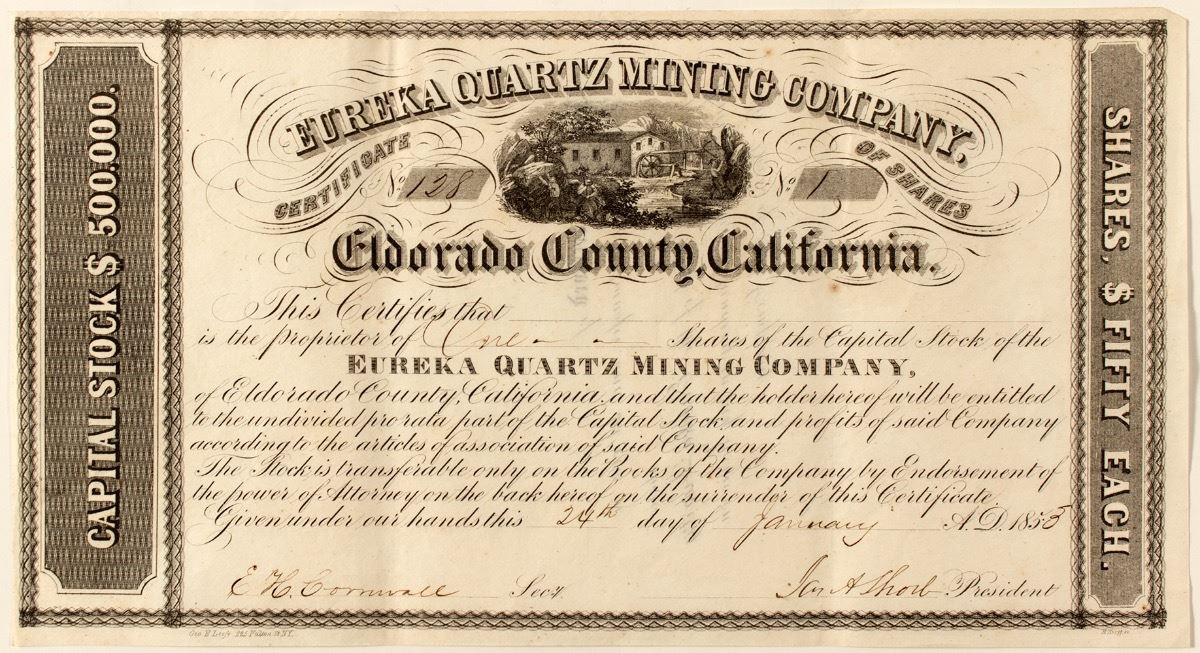 CAPITAL STOCK $ 500.000.
EUREKA QUARTZ MINING COMPANY,
CERTIFICATE OF SHARES
No. 128 No. 1
Eldorado County, California.
This Certifies that
is the proprietor of One Shares of the Capital Stock of the
EUREKA QUARTZ MINING COMPANY,
of Eldorado County, California, and that the holder hereof will be entitled
to the undivided pro rata part of the Capital Stock and profits of said Company
according to the articles of association of said Company.
The Stock is transferable only on the Books of the Company by Endorsement of
the power of Attorney on the back hereof on the surrender of this Certificate.
Given under our hands this 24th day of January A.D. 1853
E H Cornwall Secy. Jas A Short President
Geo. F. 225 Fulton St. N.Y.
SHARES, $ FIFTY EACH.